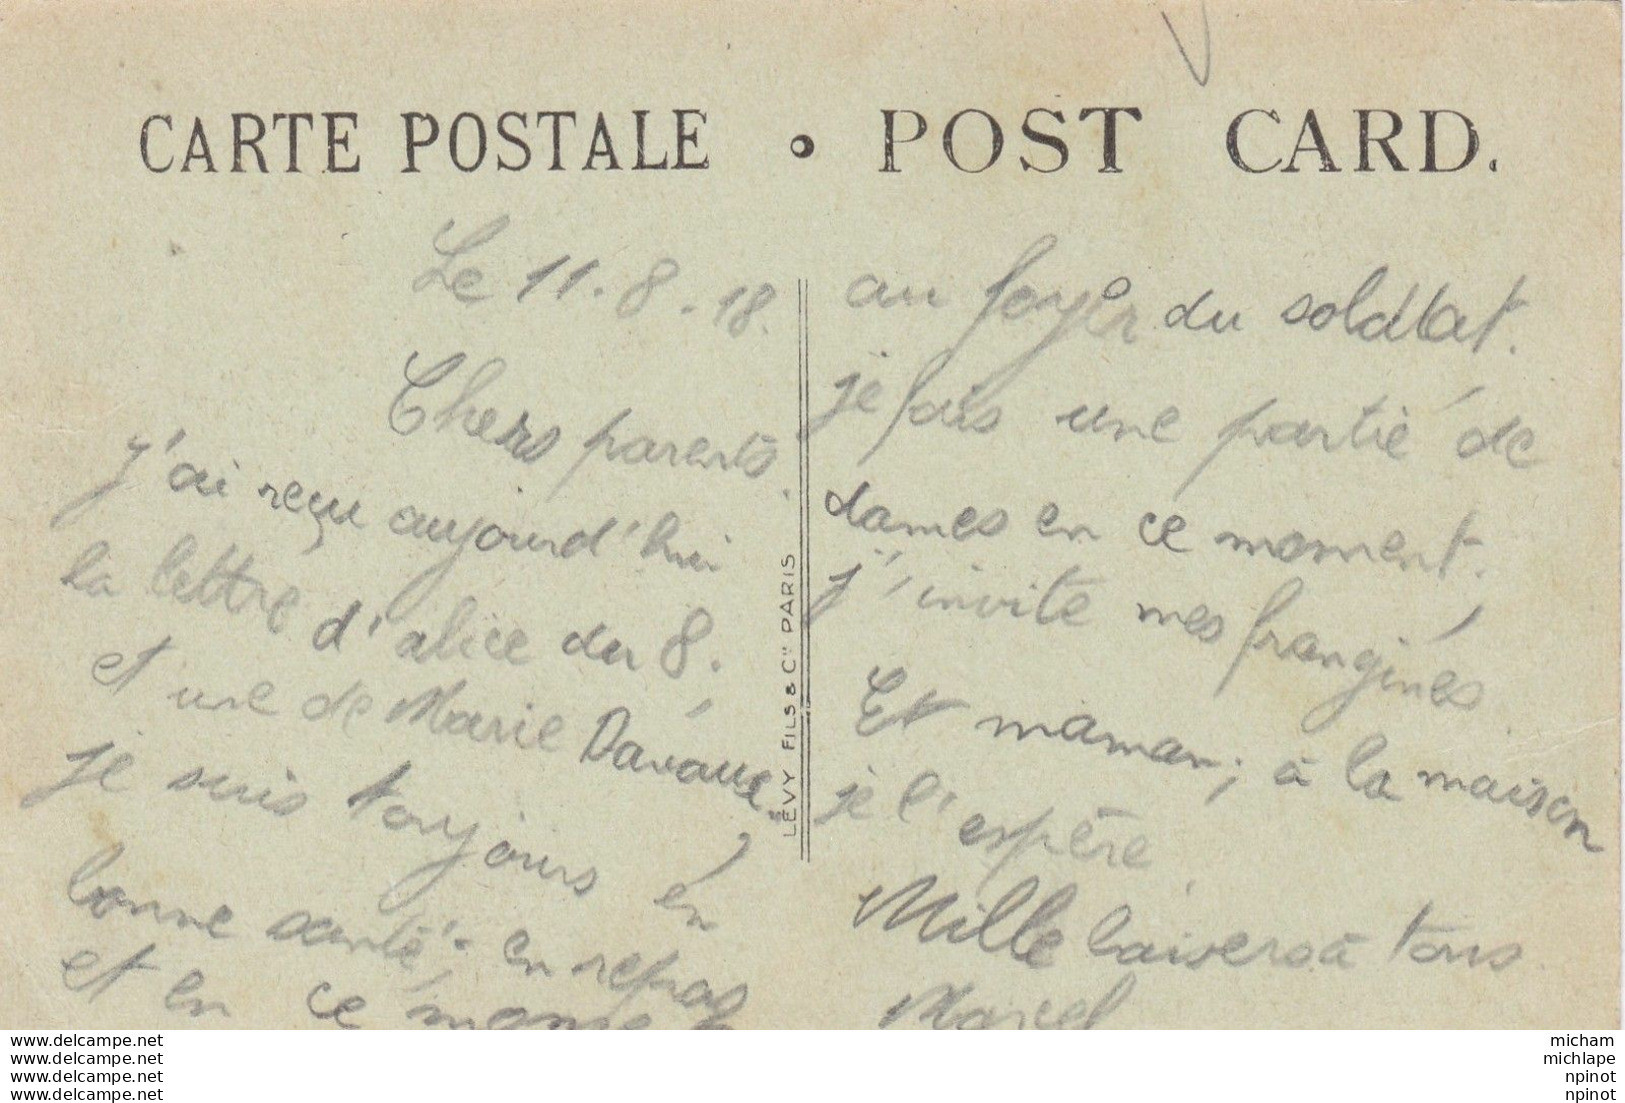 CARTE POSTALE • POST CARD.
Le 11-8-18.
Chers parents.
J'ai reçu aujourd'hui
la lettre d'alice du 8.
et une de Marie Davaue.
je suis toujours en
bonne santé, en repos
et en ce moment
au foyer du soldat.
je fais une partie de
dames en ce moment.
j'invite mes frangines
Et maman; à la maison
je l'espère.
Mille baisers à tous
Marcel
LÉVY FILS & Cie PARIS
www.delcampe.net
www.delcampe.net
www.delcampe.net
www.delcampe.net
micham
michlape
npinot
npinot